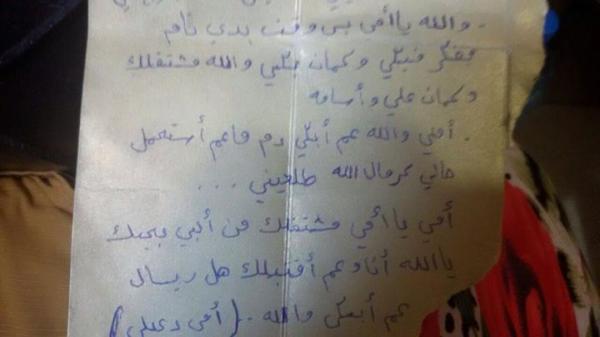 - والله يا أمي بس وقت بدي نام
مفكر فيكي وكمان فيكي والله مشتقلك
وكمان علي وأسامه
. أمي والله عم أبكي دم ماعم أستحمل
مالي كرمال الله طلعيني ...
أمي يا أمي مشتقلك من ألبي بحبك
يا الله أنا وعم أكتبلك هل ريسال
عم أبكي والله . (أمي دعيلي)